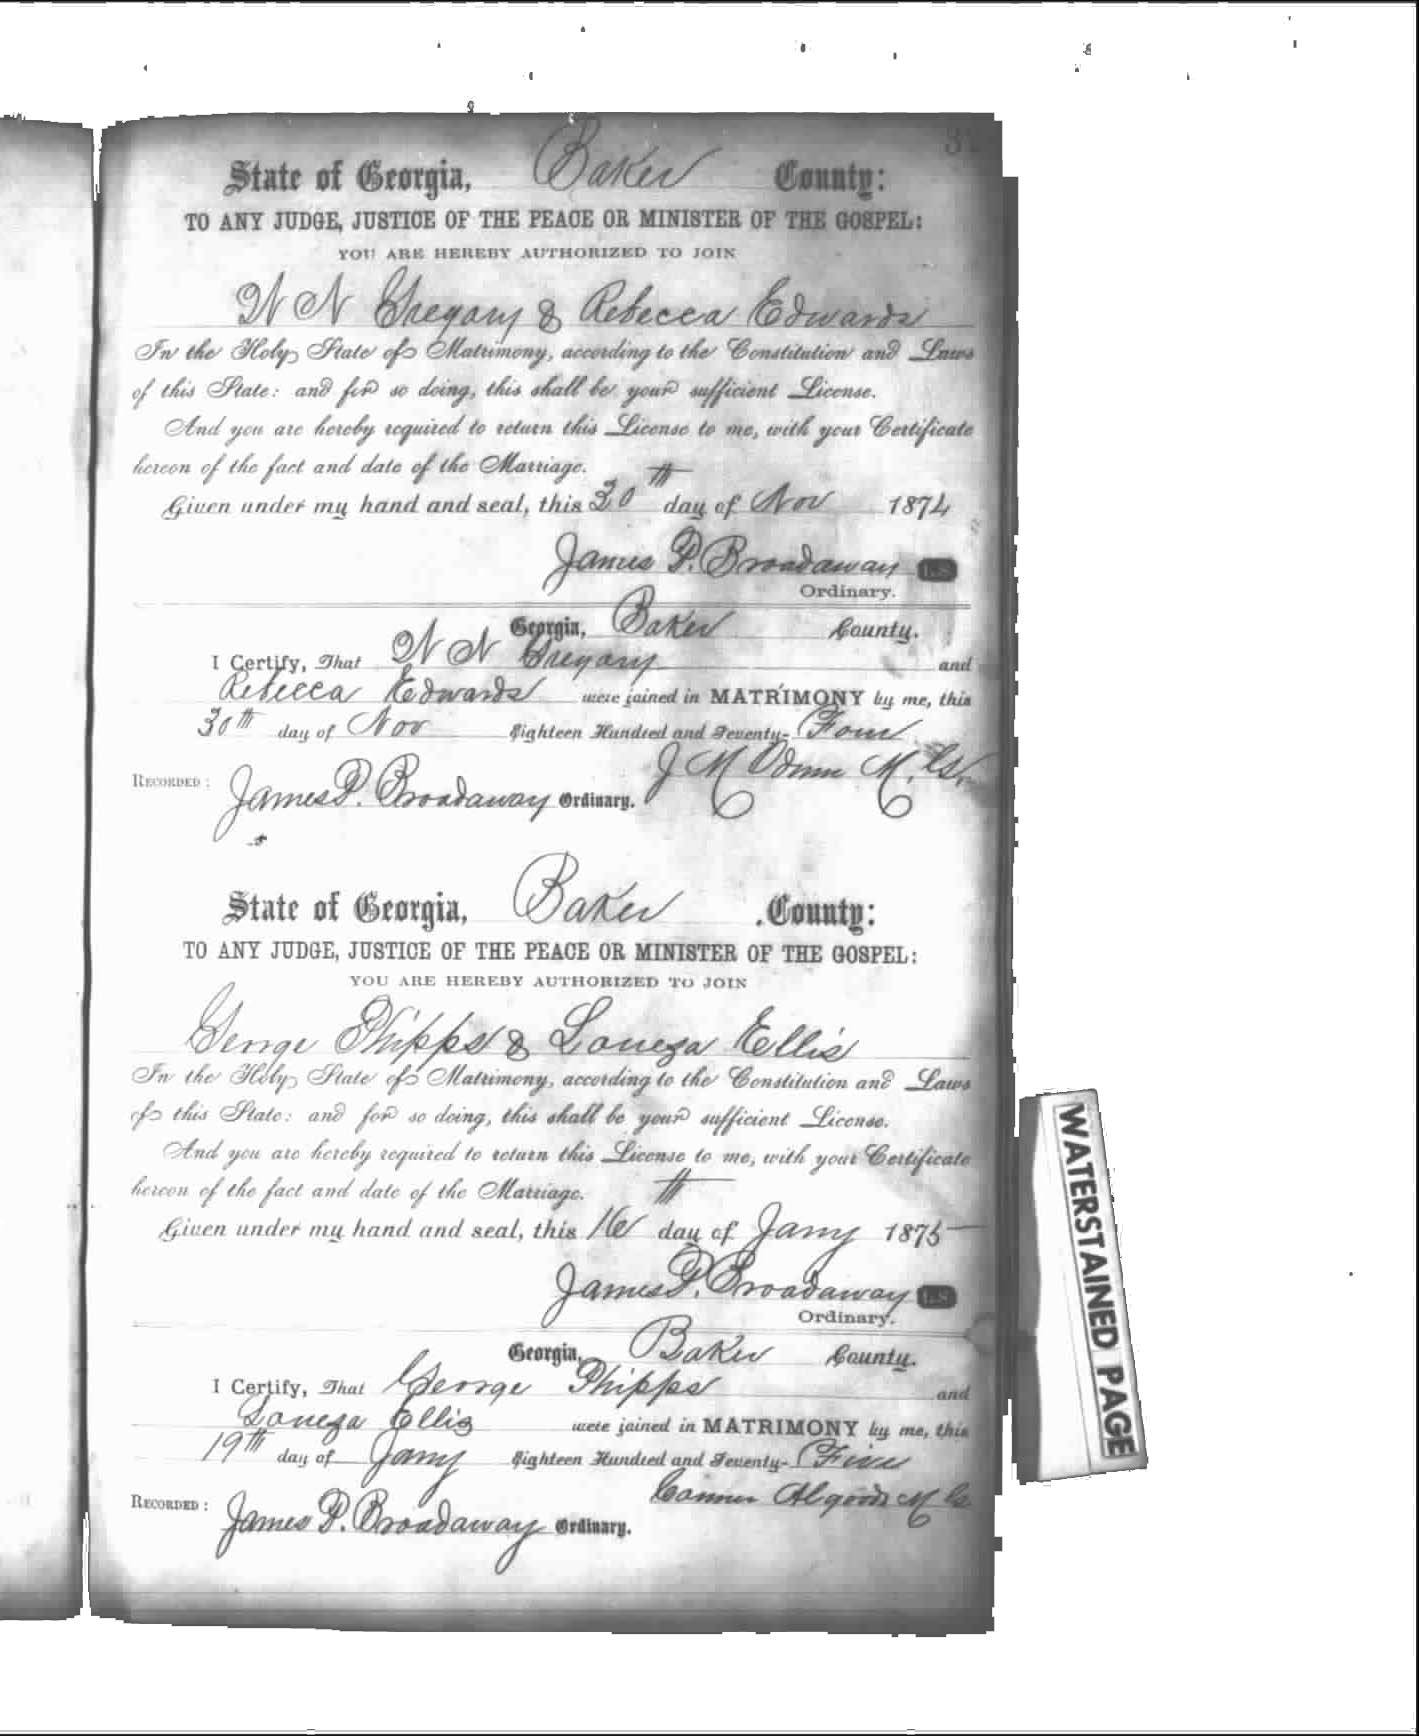 State of Georgia, Baker County:
TO ANY JUDGE, JUSTICE OF THE PEACE OR MINISTER OF THE GOSPEL:
YOU ARE HEREBY AUTHORIZED TO JOIN
W N Gregory & Rebecca Edwards
In the Holy State of Matrimony, according to the Constitution and Laws
of this State: and for so doing, this shall be your sufficient License.
And you are hereby required to return this License to me, with your Certificate
hereon of the fact and date of the Marriage.
Given under my hand and seal, this 30th day of Nov 1874
James P. Broadaway L.S.
Ordinary.
Georgia, Baker County.
I Certify, That W N Gregory and
Rebecca Edwards were joined in MATRIMONY by me, this
30th day of Nov Eighteen Hundred and Seventy-Four
J M Odum M. G.
RECORDED: James P. Broadaway Ordinary.
State of Georgia, Baker County:
TO ANY JUDGE, JUSTICE OF THE PEACE OR MINISTER OF THE GOSPEL:
YOU ARE HEREBY AUTHORIZED TO JOIN
George Phipps & Loueza Ellis
In the Holy State of Matrimony, according to the Constitution and Laws
of this State: and for so doing, this shall be your sufficient License.
And you are hereby required to return this License to me, with your Certificate
hereon of the fact and date of the Marriage.
Given under my hand and seal, this 16th day of Jany 1875
James P. Broadaway L.S.
Ordinary.
Georgia, Baker County.
I Certify, That George Phipps and
Loueza Ellis were joined in MATRIMONY by me, this
19th day of Jany Eighteen Hundred and Seventy-Five
Algood M G
RECORDED: James P. Broadaway Ordinary.
WATERSTAINED PAGE